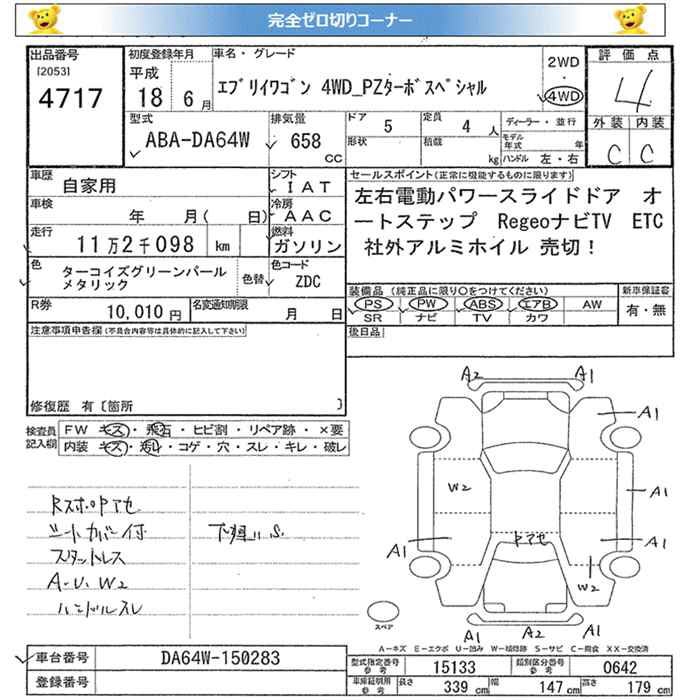 完全ゼロ切りコーナー
出品番号
[2053]
4717
初度登録年月
平成
18 6月
車名・グレード
エブリイワゴン 4WD_PZターボスペシャル
2WD
・
4WD
評価点
4
外装 内装
C C
型式
ABA-DA64W
排気量
658
cc
ドア
5
定員
4 人
形状
積載
kg
ディーラー・並行
モデル年式 年
ハンドル 左・右
車歴
自家用
シフト
IAT
車検
年 月( 日)
冷房
AAC
走行
11万2千098 km
燃料
ガソリン
色
ターコイズグリーンパール
メタリック
色替
色コード
ZDC
R券
10,010 円
名変通知期限
月 日
セールスポイント(正常に機能するものに限ります)
左右電動パワースライドドア オ
ートステップ RegeoナビTV ETC
社外アルミホイル 売切!
装備品 (純正品に限り○をつけてください)
PS PW ABS エアB AW
SR ナビ TV カワ
新車保証書
有・無
後日品
注意事項申告欄(不具合内容等は具体的に記入して下さい)
修復歴 有〔箇所 〕
検査員
記入欄
FW キズ・飛石・ヒビ割・リペア跡・×要
内装 キズ・汚れ・コゲ・穴・スレ・キレ・破レ
RスポPアセ
シートカバー付
スタットレス
A・U、W2
ハンドルスレ
下廻りS.
A2 A1
A1
W2
A1
A1
Pアセ
A1
W2
A1 A2 A1
スペア
A-キズ E-エクボ U-凹み W-補修跡 S-サビ C-腐食 XX-交換済
車台番号
DA64W-150283
登録番号
型式指定番号
参考
15133
類別区分番号
参考
0642
車庫証明用
参考
長さ 339 cm
幅 147 cm
高さ 179 cm